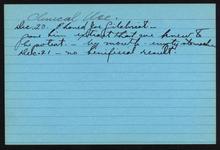 Clinical Use.
Dec. 20. Phoned for Gilchrist -
gave him extract that we knew to
be potent - by mouth - empty stomach
Dec. 21 - no beneficial result.